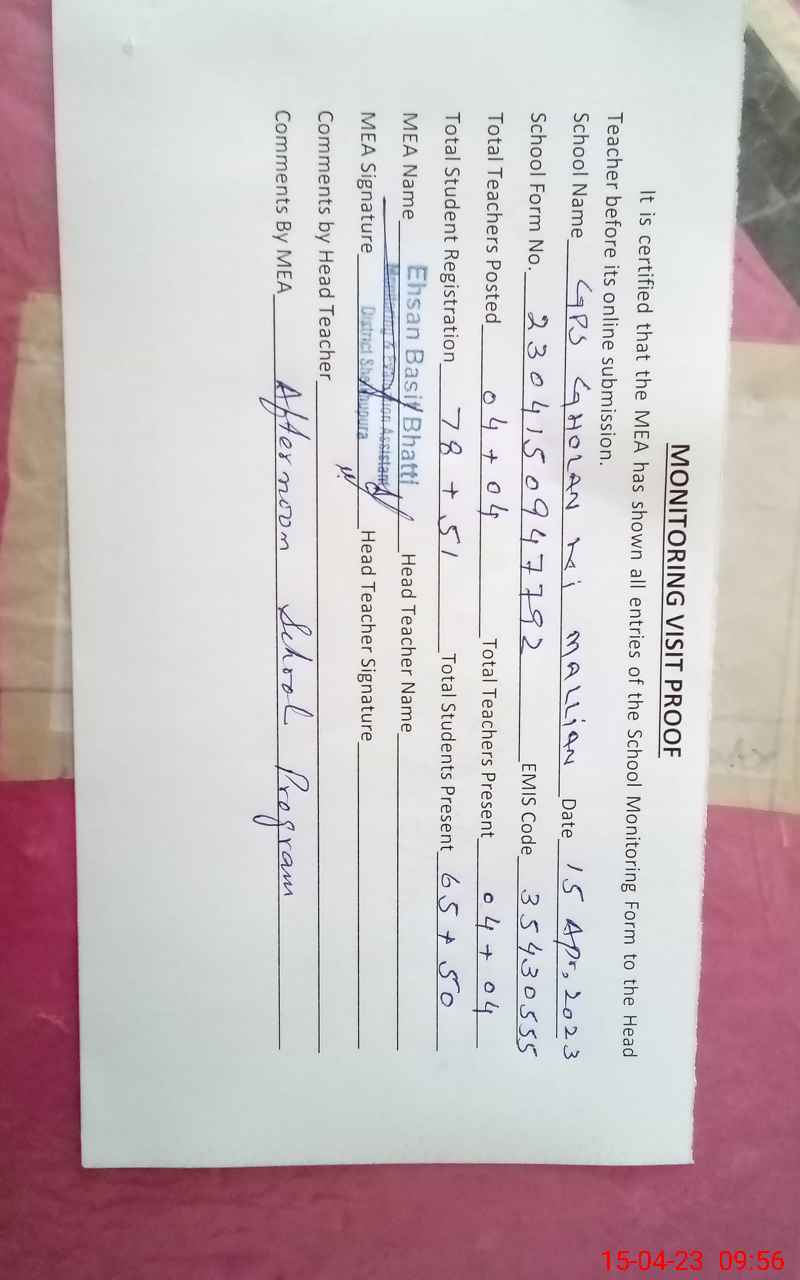 MONITORING VISIT PROOF
It is certified that the MEA has shown all entries of the School Monitoring Form to the Head
Teacher before its online submission.
School Name GPS GHOLAN Ki MALLiAN Date 15 Apr, 2023
School Form No. 2304150947792 EMIS Code 35430555
Total Teachers Posted 04 + 04 Total Teachers Present 04 + 04
Total Student Registration 78 + 51 Total Students Present 65 + 50
MEA Name Ehsan Basit Bhatti Head Teacher Name
Monitoring & Evaluation Assistant
MEA Signature District Sheikhupura Head Teacher Signature
Comments by Head Teacher
Comments By MEA Afternoon School Program
15-04-23 09:56